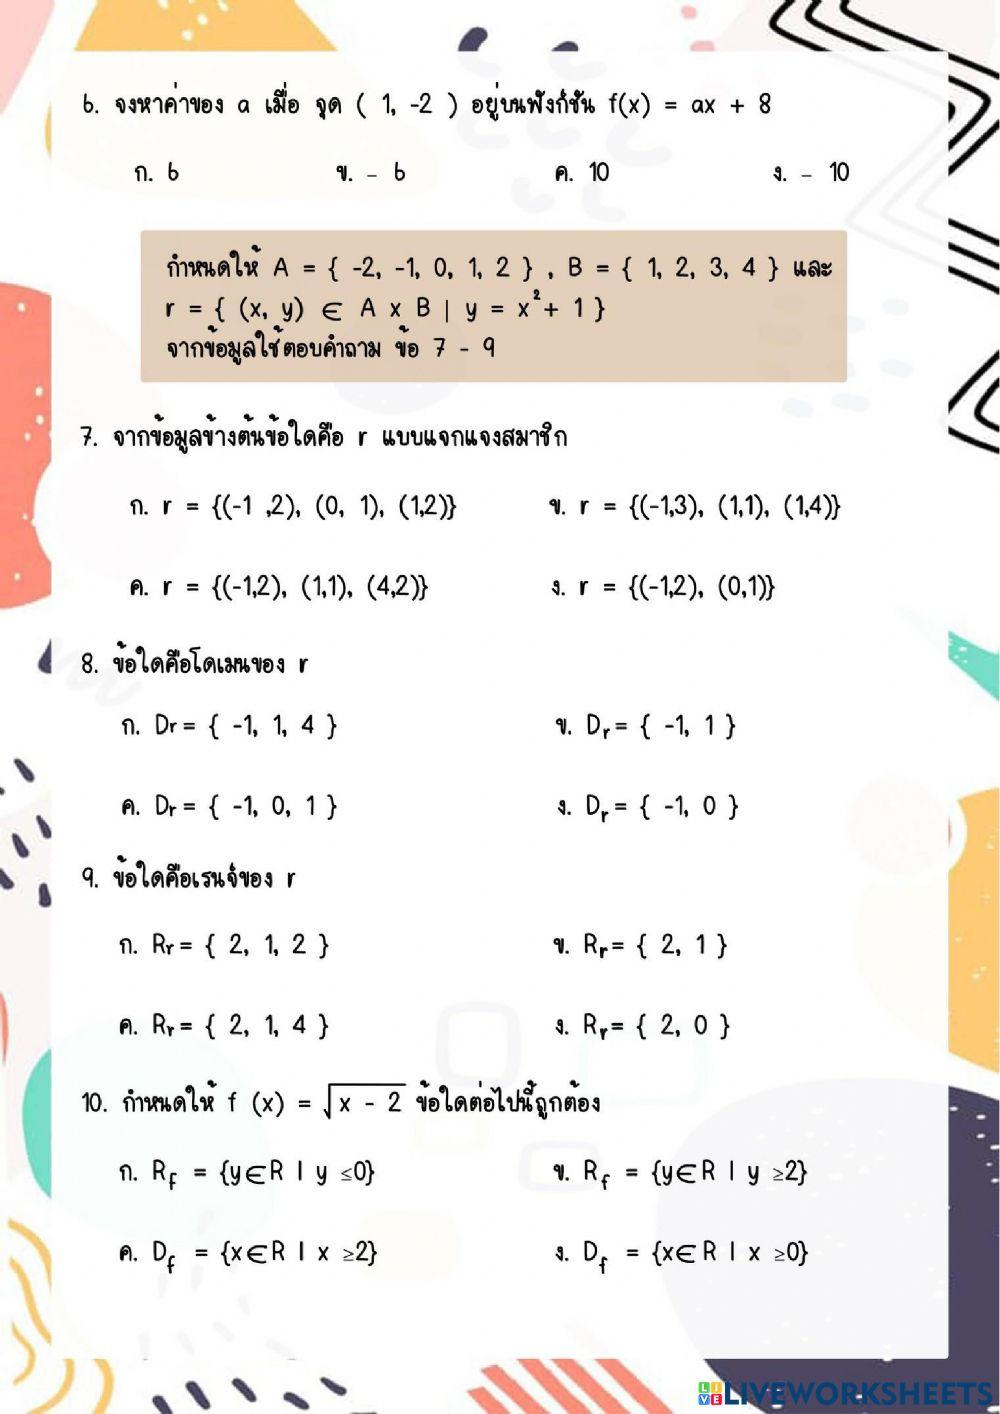 6. จงหาค่าของ a เมื่อ จุด ( 1, -2 ) อยู่บนฟังก์ชัน f(x) = ax + 8
ก. 6 ข. - 6 ค. 10 ง. - 10
กำหนดให้ A = { -2, -1, 0, 1, 2 } , B = { 1, 2, 3, 4 } และ
r = { (x, y) ∈ A x B | y = x² + 1 }
จากข้อมูลใช้ตอบคำถาม ข้อ 7 - 9
7. จากข้อมูลข้างต้นข้อใดคือ r แบบแจกแจงสมาชิก
ก. r = {(-1 ,2), (0, 1), (1,2)} ข. r = {(-1,3), (1,1), (1,4)}
ค. r = {(-1,2), (1,1), (4,2)} ง. r = {(-1,2), (0,1)}
8. ข้อใดคือโดเมนของ r
ก. Dr = { -1, 1, 4 } ข. Dr = { -1, 1 }
ค. Dr = { -1, 0, 1 } ง. Dr = { -1, 0 }
9. ข้อใดคือเรนจ์ของ r
ก. Rr = { 2, 1, 2 } ข. Rr = { 2, 1 }
ค. Rr = { 2, 1, 4 } ง. Rr = { 2, 0 }
10. กำหนดให้ f (x) = √x - 2 ข้อใดต่อไปนี้ถูกต้อง
ก. Rf = {y∈R | y ≤0} ข. Rf = {y∈R | y ≥2}
ค. Df = {x∈R | x ≥2} ง. Df = {x∈R | x ≥0}
LIVE LIVEWORKSHEETS